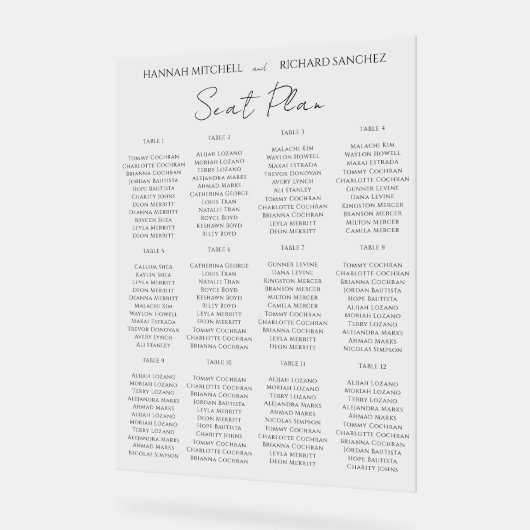 HANNAH MITCHELL and RICHARD SANCHEZ
Seat Plan
TABLE 1
TOMMY COCHRAN
CHARLOTTE COCHRAN
BRIANNA COCHRAN
JORDAN BAUTISTA
HOPE BAUTISTA
CHARITY JOHNS
DEON MERRITT
DEANNA MERRITT
BRYCEN SHEA
LEYLA MERRITT
DEON MERRITT
TABLE 2
ALIJAH LOZANO
MORIAH LOZANO
TERRY LOZANO
ALEJANDRA MARKS
AHMAD MARKS
CATHERINA GEORGE
LOUIS TRAN
NATALIE TRAN
ROYCE BOYD
KESHAWN BOYD
RILEY BOYD
TABLE 3
MALACHI KIM
WAYLON HOWELL
MAKAI ESTRADA
TREVOR DONOVAN
AVERY LYNCH
ALI STANLEY
TOMMY COCHRAN
CHARLOTTE COCHRAN
BRIANNA COCHRAN
LEYLA MERRITT
DEON MERRITT
TABLE 4
MALACHI KIM
WAYLON HOWELL
MAKAI ESTRADA
TOMMY COCHRAN
CHARLOTTE COCHRAN
GUNNER LEVINE
DANA LEVINE
KINGSTON MERCER
BRANSON MERCER
MILTON MERCER
CAMILA MERCER
TABLE 5
CALLUM SHEA
KAYLIN SHEA
LEYLA MERRITT
DEON MERRITT
DEANNA MERRITT
MALACHI KIM
WAYLON HOWELL
MAKAI ESTRADA
TREVOR DONOVAN
AVERY LYNCH
ALI STANLEY
TABLE 6
CATHERINA GEORGE
LOUIS TRAN
NATALIE TRAN
ROYCE BOYD
KESHAWN BOYD
RILEY BOYD
LEYLA MERRITT
DEON MERRITT
TOMMY COCHRAN
CHARLOTTE COCHRAN
BRIANNA COCHRAN
TABLE 7
GUNNER LEVINE
DANA LEVINE
KINGSTON MERCER
BRANSON MERCER
MILTON MERCER
CAMILA MERCER
LEYLA MERRITT
DEON MERRITT
TOMMY COCHRAN
CHARLOTTE COCHRAN
BRIANNA COCHRAN
TABLE 8
TOMMY COCHRAN
CHARLOTTE COCHRAN
BRIANNA COCHRAN
JORDAN BAUTISTA
HOPE BAUTISTA
ALIJAH LOZANO
MORIAH LOZANO
TERRY LOZANO
ALEJANDRA MARKS
AHMAD MARKS
NICOLAS SIMPSON
TABLE 9
ALIJAH LOZANO
MORIAH LOZANO
TERRY LOZANO
ALEJANDRA MARKS
AHMAD MARKS
ALIJAH LOZANO
MORIAH LOZANO
TERRY LOZANO
ALEJANDRA MARKS
AHMAD MARKS
NICOLAS SIMPSON
TABLE 10
TOMMY COCHRAN
CHARLOTTE COCHRAN
BRIANNA COCHRAN
JORDAN BAUTISTA
LEYLA MERRITT
DEON MERRITT
HOPE BAUTISTA
CHARITY JOHNS
TOMMY COCHRAN
CHARLOTTE COCHRAN
BRIANNA COCHRAN
TABLE 11
ALIJAH LOZANO
MORIAH LOZANO
TERRY LOZANO
ALEJANDRA MARKS
AHMAD MARKS
NICOLAS SIMPSON
TOMMY COCHRAN
CHARLOTTE COCHRAN
BRIANNA COCHRAN
LEYLA MERRITT
DEON MERRITT
TABLE 12
ALIJAH LOZANO
MORIAH LOZANO
TERRY LOZANO
ALEJANDRA MARKS
AHMAD MARKS
TOMMY COCHRAN
CHARLOTTE COCHRAN
BRIANNA COCHRAN
JORDAN BAUTISTA
HOPE BAUTISTA
CHARITY JOHNS